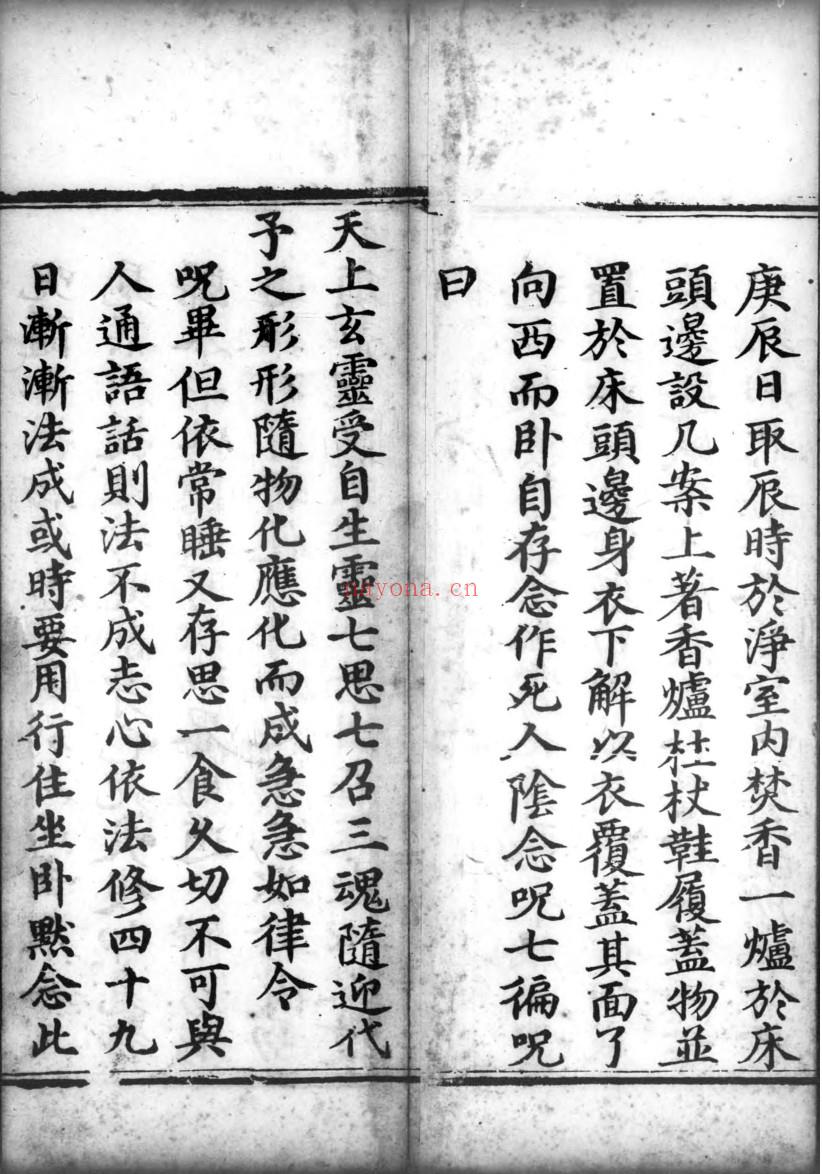 庚辰日取辰時於淨室内焚香一爐於床
頭邊設几案上著香爐拄杖鞋履蓋物並
置於床頭邊身衣下解以衣覆蓋其面了
向西而卧自存念作死人陰念呪七徧呪
曰
天上玄靈受自生靈七思七召三魂隨迎代
予之形形隨物化應化而成急急如律令
呪畢但依常睡又存思一食久切不可與
人通語話則法不成志心依法修四十九
日漸漸法成或時要用行住坐卧默念此
nayona.cn